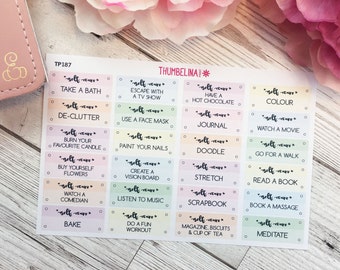 TP187
THUMBELINA
*self-care*
TAKE A BATH
*self-care*
DE-CLUTTER
*self-care*
BURN YOUR
FAVOURITE CANDLE
*self-care*
BUY YOURSELF
FLOWERS
*self-care*
WATCH A
COMEDIAN
*self-care*
BAKE
*self-care*
ESCAPE WITH
A TV SHOW
*self-care*
USE A FACE MASK
*self-care*
PAINT YOUR NAILS
*self-care*
CREATE A
VISION BOARD
*self-care*
LISTEN TO MUSIC
*self-care*
DO A FUN
WORKOUT
*self-care*
HAVE A
HOT CHOCOLATE
*self-care*
JOURNAL
*self-care*
DOODLE
*self-care*
STRETCH
*self-care*
SCRAPBOOK
*self-care*
MAGAZINE, BISCUITS
& CUP OF TEA
*self-care*
COLOUR
*self-care*
WATCH A MOVIE
*self-care*
GO FOR A WALK
*self-care*
READ A BOOK
*self-care*
BOOK A MASSAGE
*self-care*
MEDITATE